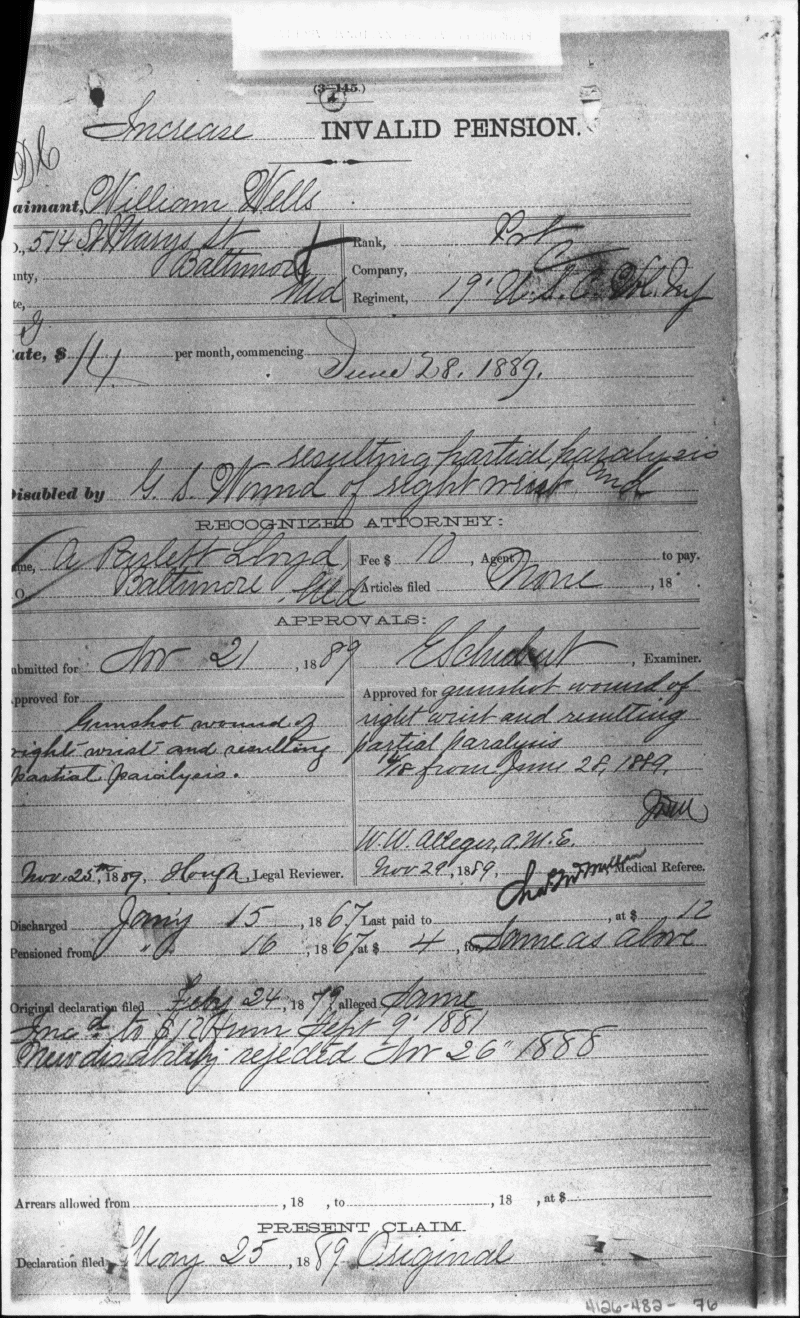 (3—145.)
Increase INVALID PENSION.
aimant, William Wells
514 St Marys St
Baltimore
Md
unty,
te,
Rank, Pvt
Company, C
Regiment, 19" U.S.C. Vol. Inf
ate, $ 14 per month, commencing June 28, 1889.
resulting partial paralysis
Disabled by G. S. Wound of right wrist and
RECOGNIZED ATTORNEY:
me, A Lloyd
Baltimore Md
Fee $ 10, Agent to pay.
Articles filed None, 18
APPROVALS:
ubmitted for Nov 21, 1889
pproved for
Gunshot wound of
right wrist and resulting
partial paralysis.
Nov. 25th, 1889, Hough, Legal Reviewer.
E Schubert, Examiner.
Approved for gunshot wound of
right wrist and resulting
partial paralysis
from June 28, 1889.
W.W. Alleger, A.M.E.
Nov 29, 1889, Medical Referee.
Discharged Jany 15, 1867 Last paid to, at $ 12
Pensioned from " 16 1867 at $ 4, for Same as above
Original declaration filed Feby 24, 1879, alleged Same
Incd to $12 from Sept 9" 1881
New disability rejected Nov 26" 1888
Arrears allowed from, 18 , to, 18 , at $
PRESENT CLAIM.
Declaration filed, May 25, 1889 Original
4126-482- 76